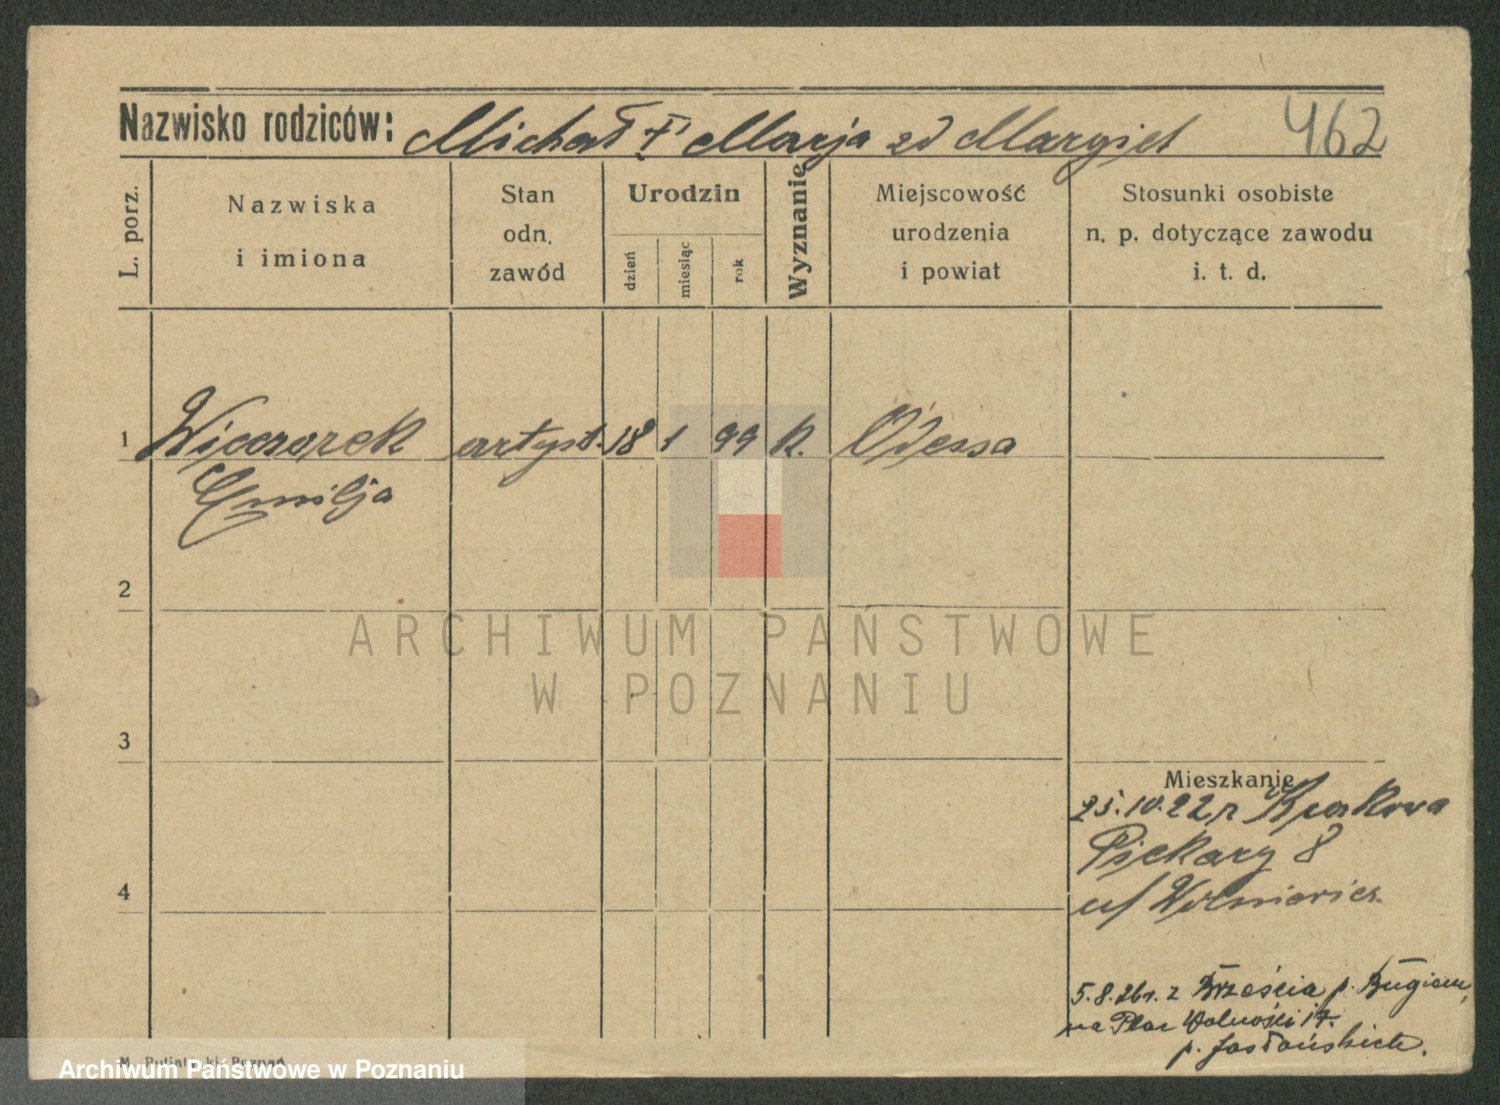 Nazwisko rodziców: Michał i Marja zd Margiel 462
L. porz.
Nazwiska
i imiona
Stan
odn.
zawód
Urodzin
dzień
miesiąc
rok
Wyznanie
Miejscowość
urodzenia
i powiat
Stosunki osobiste
n. p. dotyczące zawodu
i. t. d.
1 Wieczorek artyst. 18 1 99 k. Odessa
Emilja
2
ARCHIWUM PAŃSTWOWE
W POZNANIU
3
Mieszkanie
25.10.22 r Krakowa
Piekary 8
4
u/
5.8.26r. z Brześcia p. Bugiem,
na Plac Wolności 17.
p. Jasłońskich.
M. Poznań
Archiwum Państwowe w Poznaniu